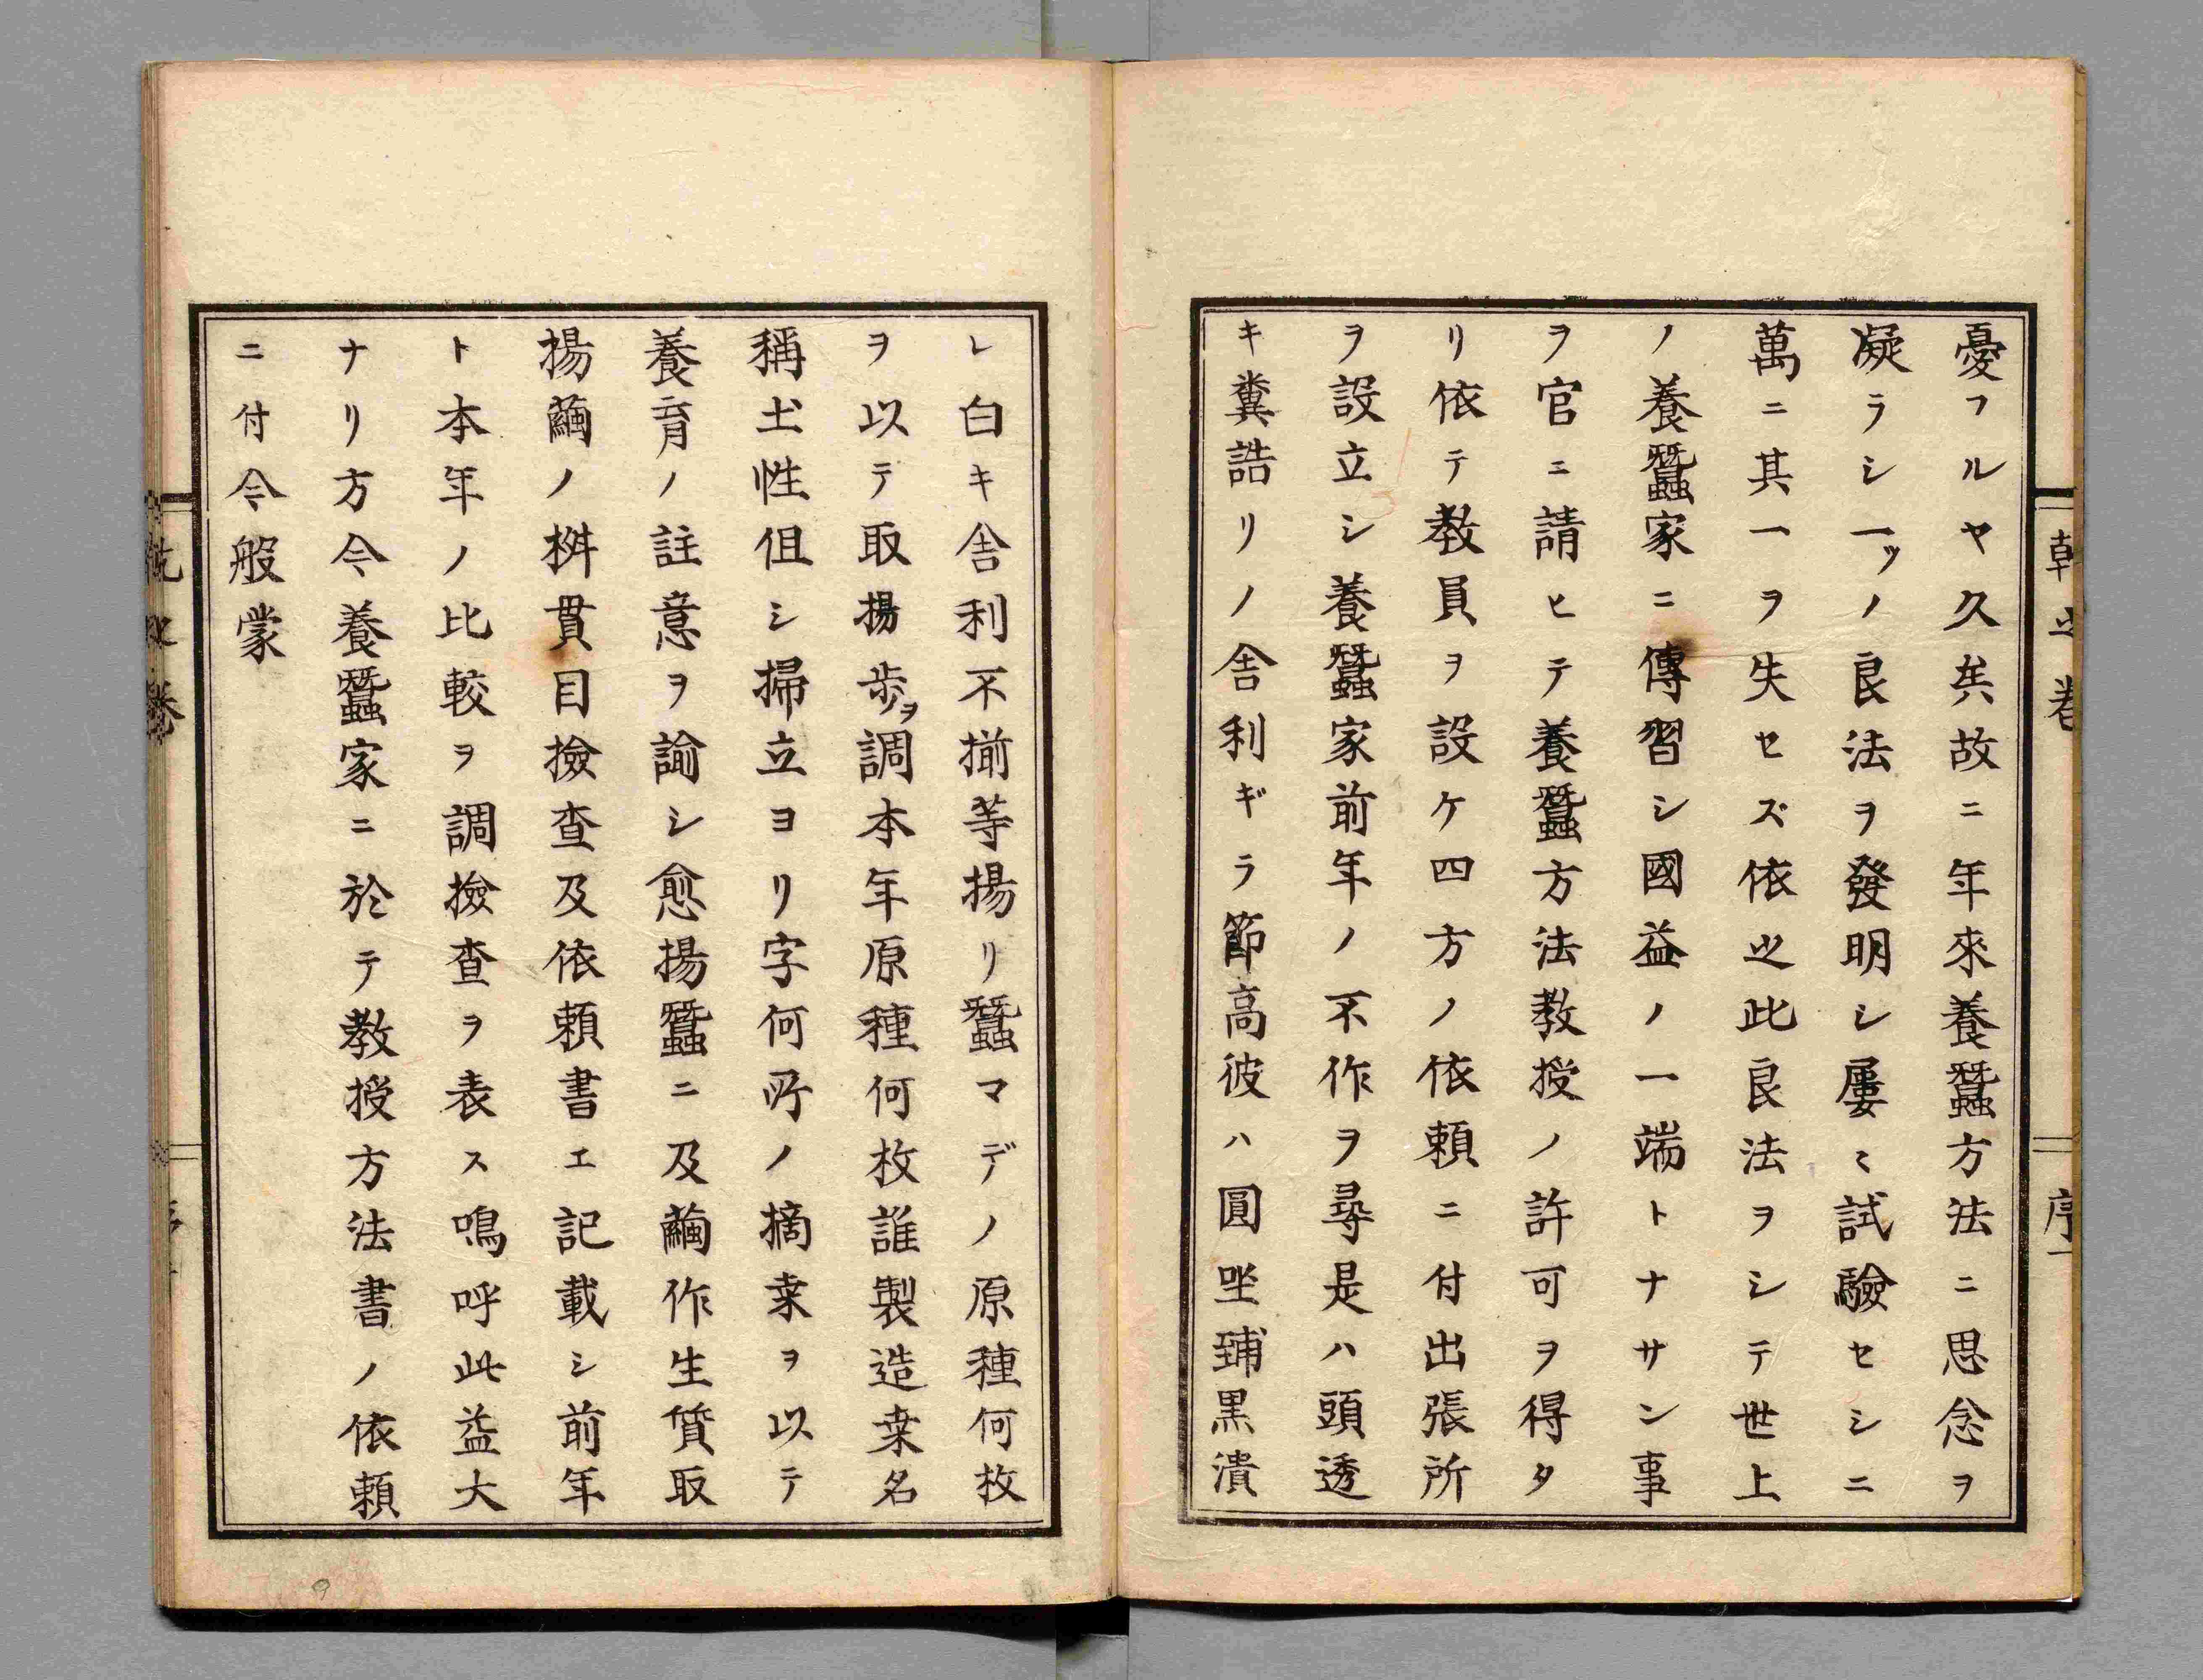 憂フルヤ久矣故ニ年來養蠶方法ニ思念ヲ
凝ラシ一ツノ良法ヲ發明シ屢〻試驗セシニ
萬ニ其一ヲ失セズ依之此良法ヲシテ世上
ノ養蠶家ニ傳習シ國益ノ一端トナサン事
ヲ官ニ請ヒテ養蠶方法教授ノ許可ヲ得タ
リ依テ教員ヲ設ケ四方ノ依頼ニ付出張所
ヲ設立シ養蠶家前年ノ不作ヲ尋是ハ頭透
キ糞誥リノ舎利ギラ節高彼ハ圓坐黒潰
レ白キ舎利不揃等揚リ蠶マデノ原種何枚
ヲ以テ取揚歩ヲ調本年原種何枚誰製造桒名
稱土性伹シ掃立ヨリ字何所ノ摘桒ヲ以テ
養育ノ註意ヲ諭シ愈揚蠶ニ及繭作生質取
揚繭ノ桝貫目撿查及依頼書エ記載シ前年
ト本年ノ比較ヲ調撿查ヲ表ス鳴呼此益大
ナリ方今養蠶家ニ於テ教授方法書ノ依頼
ニ付今般蒙